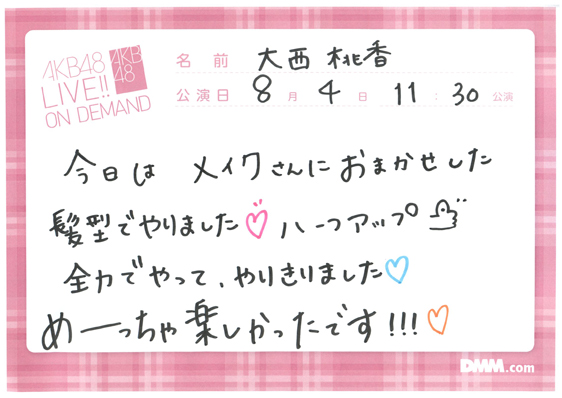 AKB48
LIVE!!
ON DEMAND
AKB
48
名前 大西桃香
公演日 8月4日 11:30公演
今日は メイクさんにおまかせした
髪型でやりました♡ ハーフアップ
全力でやって、やりきりました♡
めーっちゃ楽しかったです!!!♡
DMM.com